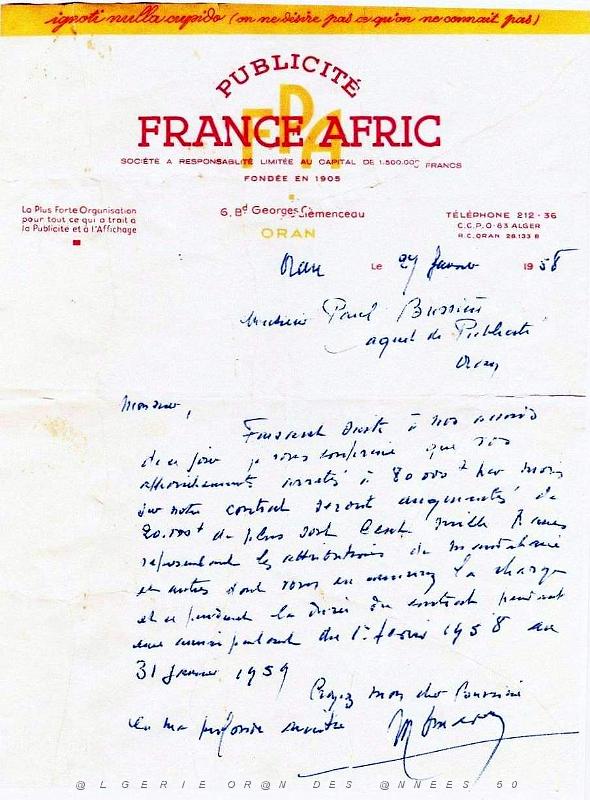 ignoti nulla cupido (on ne désire pas ce qu'on ne connait pas)
PUBLICITÉ
FPA
FRANCE AFRIC
SOCIÉTÉ A RESPONSABILITÉ LIMITÉE AU CAPITAL DE 1.500.000 FRANCS
FONDÉE EN 1905
La Plus Forte Organisation
pour tout ce qui a trait à
la Publicité et à l'Affichage
6, Bd Georges Clémenceau
ORAN
TÉLÉPHONE 212-36
C.C.P.O. 83 ALGER
R.C. ORAN 28.133 B
Oran Le 27 Janvier 1958
Monsieur Paul
agent de Publicité
Oran
Monsieur,
Faisant suite à nos accords
de ce jour je vous confirme que vos
arretés à 80.000 f par mois
sur notre contrat seront augmentés de
20.000 f de plus soit Cent mille francs
représentant les attributions de
et autres dont vous en assurez la charge
et ce pendant la durée du contrat pendant
une année partant du 1er février 1958 au
31 Janvier 1959
Croyez mon cher
en ma profonde
@LGERIE OR@N DES @NNEES 50